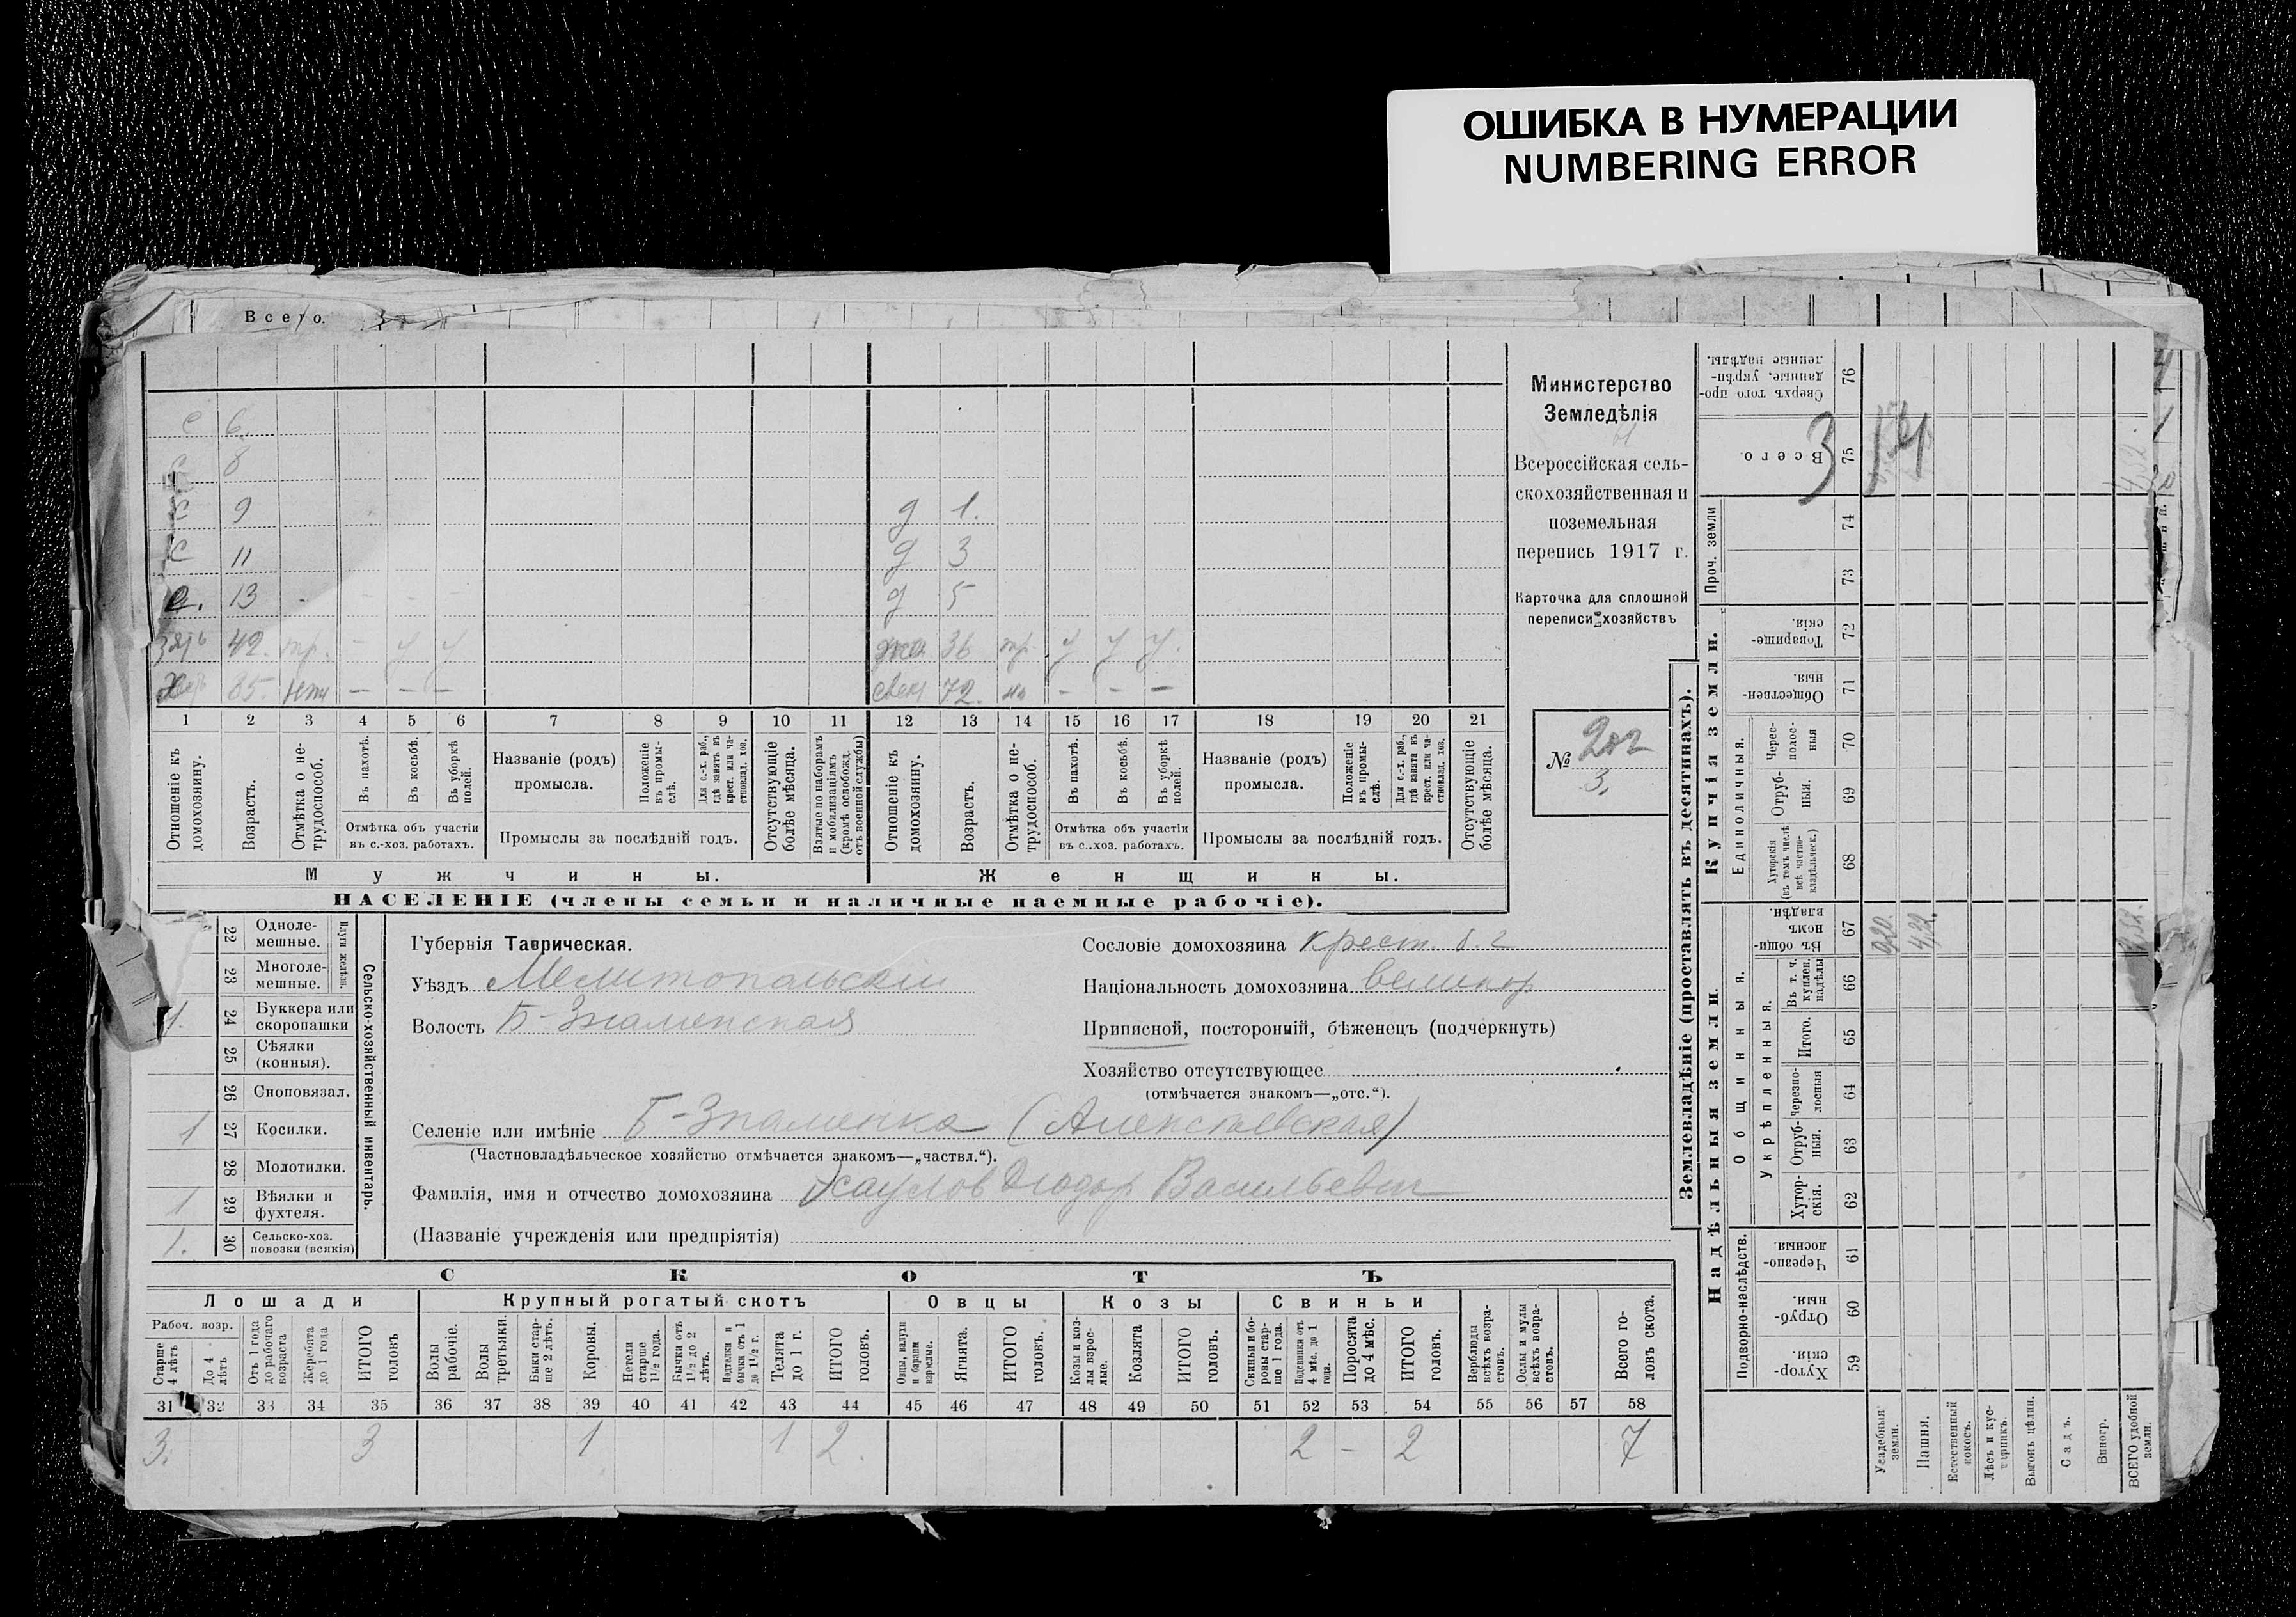 ОШИБКА В НУМЕРАЦИИ
NUMBERING ERROR
Всего.
с 6.
с 8
с 9
с 11
с. 13 -
зять 42. тр. - у у
85. - - -
д 1.
д 3
д 5
жен. 36 тр. у у у.
72. - - -
1 2 3 4 5 6 7 8 9 10 11 12 13 14 15 16 17 18 19 20 21
Отношеніе къ домохозяину.
Возрастъ.
Отмѣтка о нетрудоспособ.
Въ пахотѣ.
Въ косьбѣ.
Въ уборкѣ полей.
Отмѣтка объ участіи
въ с.-хоз. работахъ.
Названіе (родъ)
промысла.
Положеніе въ промыслѣ.
Для с.-х. раб., гдѣ занятъ въ крест. или частновлад. хоз.
Промыслы за послѣдній годъ.
Отсутствующіе болѣе мѣсяца.
Взятые по наборамъ и мобилизаціямъ (кромѣ освобожд. отъ военной службы)
Отношеніе къ домохозяину.
Возрастъ.
Отмѣтка о нетрудоспособ.
Въ пахотѣ.
Въ косьбѣ.
Въ уборкѣ полей.
Отмѣтка объ участіи
въ с..хоз. работахъ.
Названіе (родъ)
промысла.
Положеніе въ промыслѣ.
Для с.-х. раб., гдѣ занята въ крест. или частновлад. хоз.
Промыслы за послѣдній годъ.
Отсутствующіе болѣе мѣсяца.
Мужчины.
Женщины.
НАСЕЛЕНІЕ (члены семьи и наличные наемные рабочіе).
Министерство
Земледѣлія
Всероссійская сель-
скохозяйственная и
поземельная
перепись 1917 г.
Карточка для сплошной
переписи хозяйствъ
№ 202
3.
Сельско-хозяйственный инвентарь.
Плуги желѣзн.
22 Одноле-
мешные.
23 Многоле-
мешные.
1. 24 Буккера или
скоропашки
25 Сѣялки
(конныя).
26 Сноповязал.
1 27 Косилки.
28 Молотилки.
1 29 Вѣялки и
фухтеля.
1. 30 Сельско-хоз.
повозки (всякія)
Губернія Таврическая.
Уѣздъ Мелитопольскій
Волость Б-Знаменская
Сословіе домохозяина крест. б. г
Національность домохозяина великор
Приписной, посторонній, бѣженецъ (подчеркнуть)
Хозяйство отсутствующее
(отмѣчается знакомъ—„отс.“).
Селеніе или имѣніе Б-Знаменка (Алексѣевская)
(Частновладѣльческое хозяйство отмѣчается знакомъ—„частвл.“).
Фамилія, имя и отчество домохозяина Васильевич
(Названіе учрежденія или предпріятія)
СКОТЪ
Лошади
Крупный рогатый скотъ
Овцы
Козы
Свиньи
Рабоч. возр.
Старше 4 лѣтъ
До 4 лѣтъ
Отъ 1 года до рабочаго возраста
Жеребята до 1 года
ИТОГО головъ
Волы рабочіе.
Волы третьяки.
Быки старше 2 лѣтъ.
Коровы.
Нетели старше 1½ года.
Бычки отъ 1½ до 2 лѣтъ.
Подтелки и бычки отъ 1 до 1½ г.
Телята до 1 г.
ИТОГО головъ.
Овцы, валухи и бараны взрослые.
Ягнята.
ИТОГО головъ.
Козы и козлы взрослые.
Козлята
ИТОГО головъ.
Свиньи и боровы старше 1 года.
Подсвинки отъ 4 мѣс. до 1 года.
Поросята до 4 мѣс.
ИТОГО головъ.
Верблюды всѣхъ возрастовъ.
Ослы и мулы всѣхъ возрастовъ.
Всего головъ скота.
31 32 33 34 35 36 37 38 39 40 41 42 43 44 45 46 47 48 49 50 51 52 53 54 55 56 57 58
3. 3 1 1 2. 2 - 2 7
Землевладѣніе (проставлять въ десятинахъ).
Надѣльныя земли.
Купчія земли.
Проч. земли
Подворно-наслѣдств.
Общинныя.
Укрѣпленныя.
Единоличныя.
Сверхъ того проданные, укрѣпленные надѣлы. 76
Всего. 75
74
73
Товарищескія. 72
Общественныя. 71
Чересполосныя 70
Отрубныя. 69
Хуторскія (въ томъ числѣ всѣ частновладѣльческ.) 68
Въ общинномъ владѣн. 67
Въ т. ч. куплен. надѣлы 66
Итого. 65
Черезполосныя 64
Отрубныя. 63
Хуторскія. 62
Черезполосныя. 61
Отрубныя. 60
Хуторскія. 59
3
Усадебныя земли.
Пашня.
Естественный покосъ.
Лѣсъ и кустарникъ.
Выгонъ цѣлин.
Садъ.
Виногр.
ВСЕГО удобной земли.